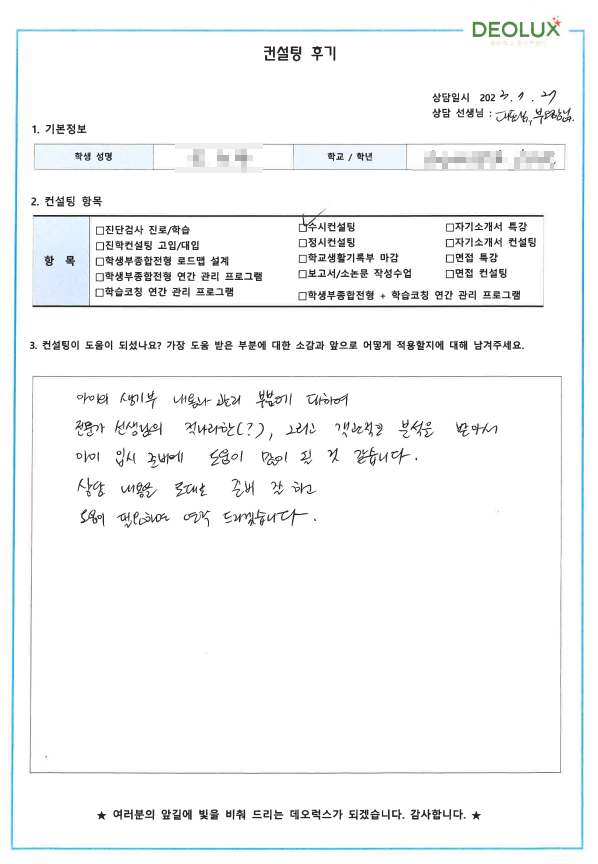 DEOLUX
컨설팅 후기
상담일시 2023. 7. 27
상담 선생님 : 대표님, 부원장님.
1. 기본정보
학생 성명 학교 / 학년
2. 컨설팅 항목
항 목
□진단검사 진로/학습 □수시컨설팅 □자기소개서 특강
□진학컨설팅 고입/대입 □정시컨설팅 □자기소개서 컨설팅
□학생부종합전형 로드맵 설계 □학교생활기록부 마감 □면접 특강
□학생부종합전형 연간 관리 프로그램 □보고서/소논문 작성수업 □면접 컨설팅
□학습코칭 연간 관리 프로그램 □학생부종합전형 + 학습코칭 연간 관리 프로그램
3. 컨설팅이 도움이 되셨나요? 가장 도움 받은 부분에 대한 소감과 앞으로 어떻게 적용할지에 대해 남겨주세요.
아이의 생기부 내용과 관리 부분에 대하여
전문가 선생님의 적나라한(?), 그리고 객관적인 분석을 받아서
아이 입시 준비에 도움이 많이 될 것 같습니다.
상담 내용을 토대로 준비 잘 하고
도움이 필요하면 연락 드리겠습니다.
★ 여러분의 앞길에 빛을 비춰 드리는 데오럭스가 되겠습니다. 감사합니다. ★